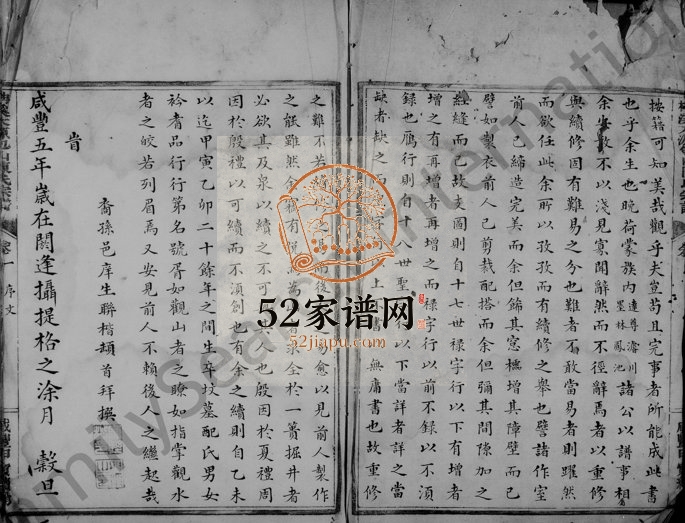 按籍可知美哉觀乎夫豈苟且完事者所能成此書
也乎余生也晚荷蒙族内達尊濬川墨林鳳池諸公以譜事相
余生敢不以淺見寡聞辭然而不徑辭焉者以重修
與續修固有難易之分也難者不敢當易者則躍然
而欲任此余所以孜孜而有續修之舉也譬諸作室
前已締造完美而余但飾其窓櫺增其障壁而已
譬如製衣前人已剪裁配搭而余但彌其間隙加之
經縫而已故支圖則自十七世祿字行以下有增者
增之有再增者再增之而祿字行以前不録以不須
録也鴈行則自十八世聖行以下當詳者詳之當
缺者缺之而上書無庸書也故重修
之難不若而後愈以見前人製作
之能雖然全於一簣掘井者
必欲其及泉以續之不可也殷因於夏禮周
因於殷禮以可續而不須創也有余之續則自乙未
以迄甲寅乙卯二十餘年之間生卒坟墓配氏男女
衿耆品行行第名號胥如觀山者之瞭如指掌觀水
者之皎若列眉焉又安見前人不賴後人之繼起哉
裔孫邑庠生聯楷頓首拜撰
旹
咸豐五年歲在閼逢攝提格之涂月 穀旦
卷一 序文
52家谱网
52jiapu.com